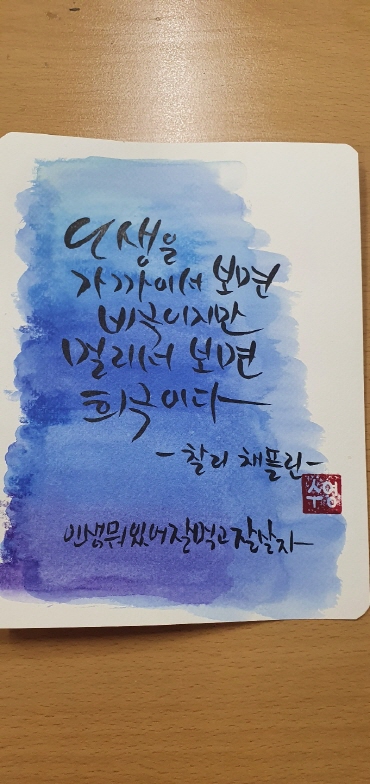 인생을
가까이서 보면
비극이지만
멀리서 보면
희극이다
- 찰리 채플린 -
수영
인생뭐있어잘먹고잘살자